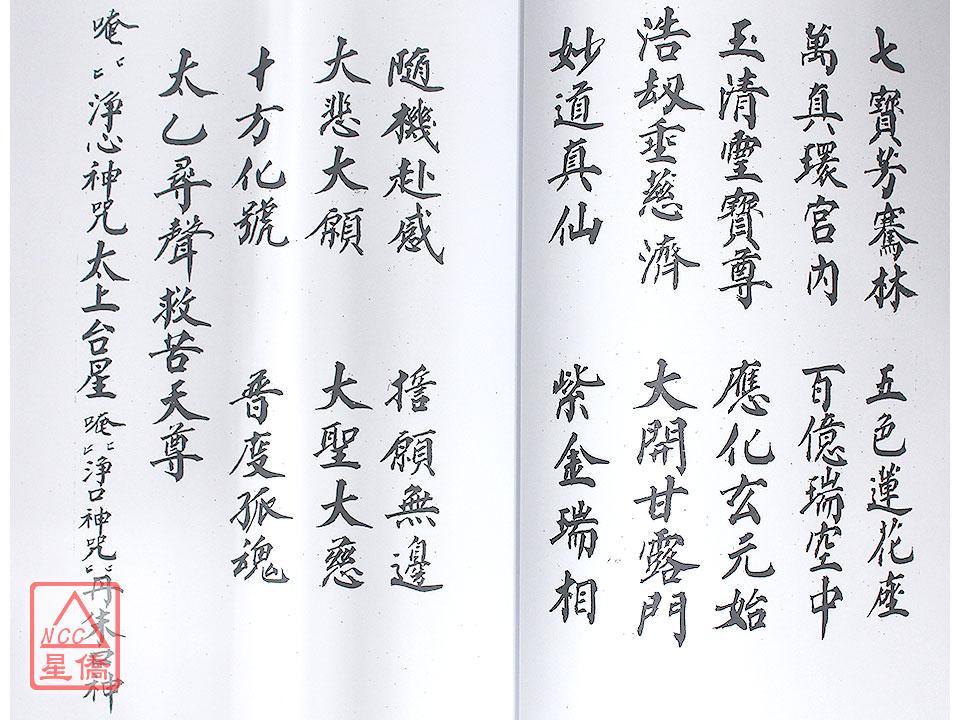 七寶芳騫林 五色蓮花座
萬真環宮內 百億瑞空中
玉清靈寶尊 應化玄元始
浩劫垂慈濟 大開甘露門
妙道真仙 紫金瑞相
隨機赴感 誓願無邊
大悲大願 大聖大慈
十方化號 普度孤魂
太乙尋聲救苦天尊
唵匕匕淨心神咒太上台星唵匕匕淨口神咒匕匕丹朱口神
NCC
星僑